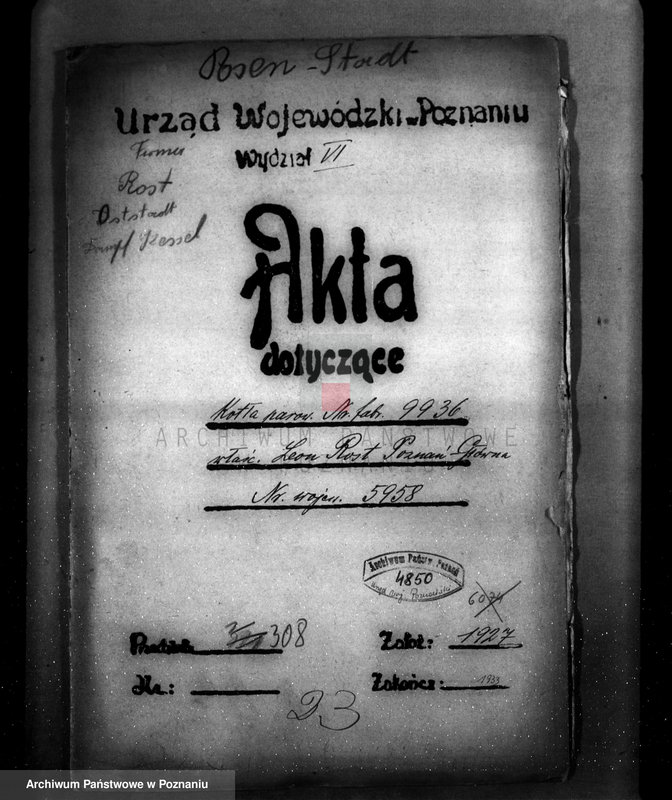 Posen-Stadt
Urząd Wojewódzki-Poznaniu
Wydział VI
Rost
Oststadt
Dampf Kessel
Akta
dotyczące
Kotła parow. Nr. fabr. 9936
ARCHIWUM PAŃSTWOWE
właśc. Leon Rost Poznań-Główna
Nr. wojew. 5958
Archiwum Państw. Poznań
4850
Urząd Woj. Poznański
6074
308
Założ: 1927
Nr.:
Zakończ: 1933
23
Archiwum Państwowe w Poznaniu